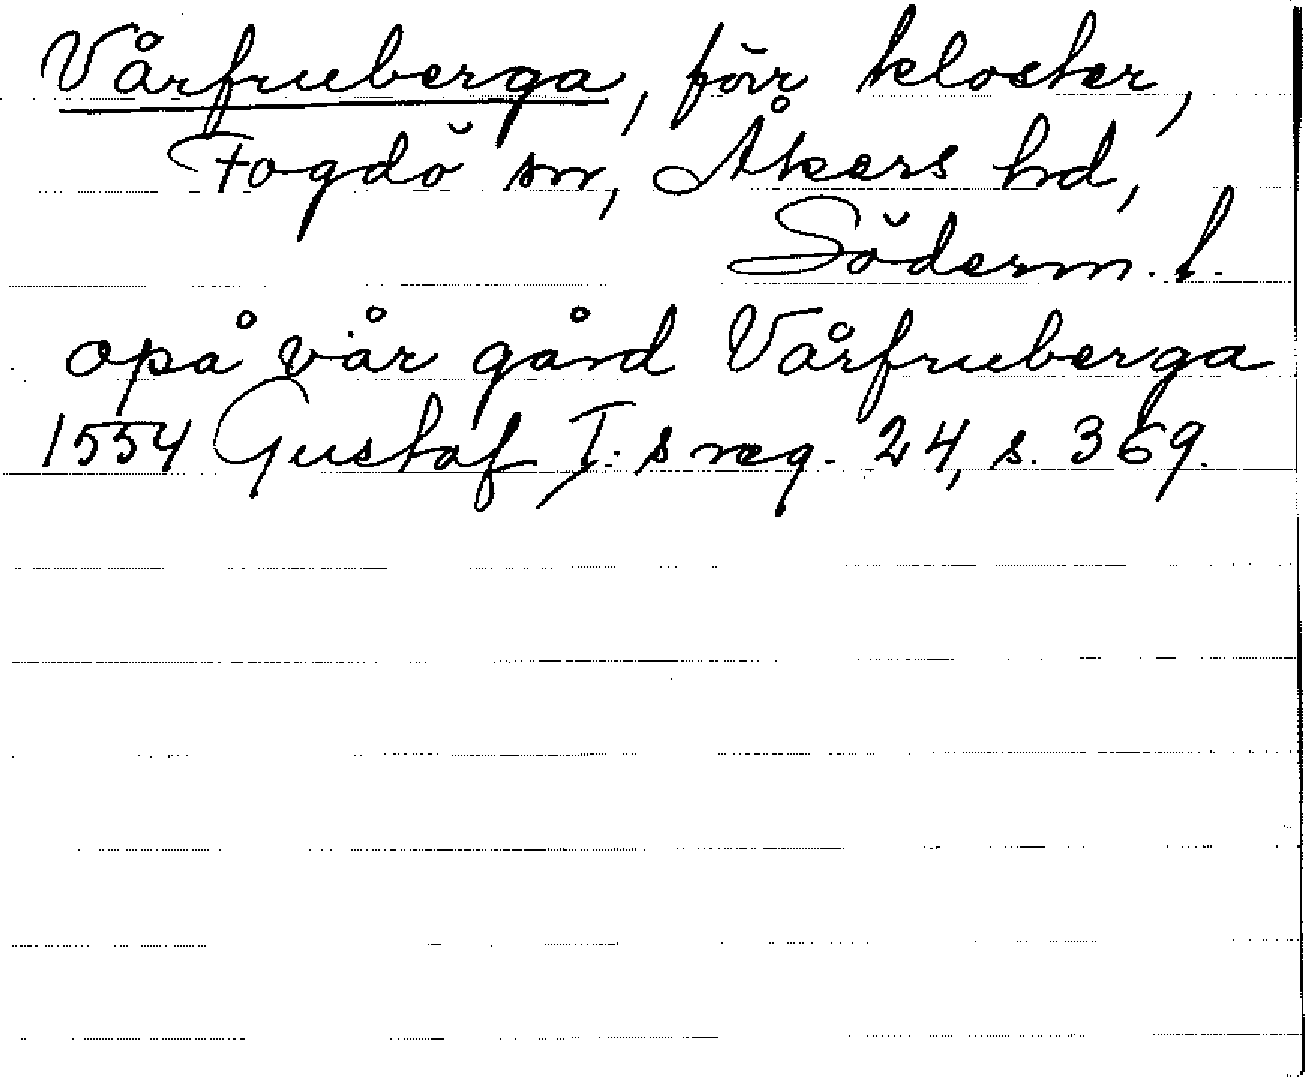 Vårfruberga, förr kloster,
Fogdö sn, Åkers hd,
Söderm. l.
opå vår gård Vårfruberga
1554 Gustaf I:s reg. 24, s. 369.